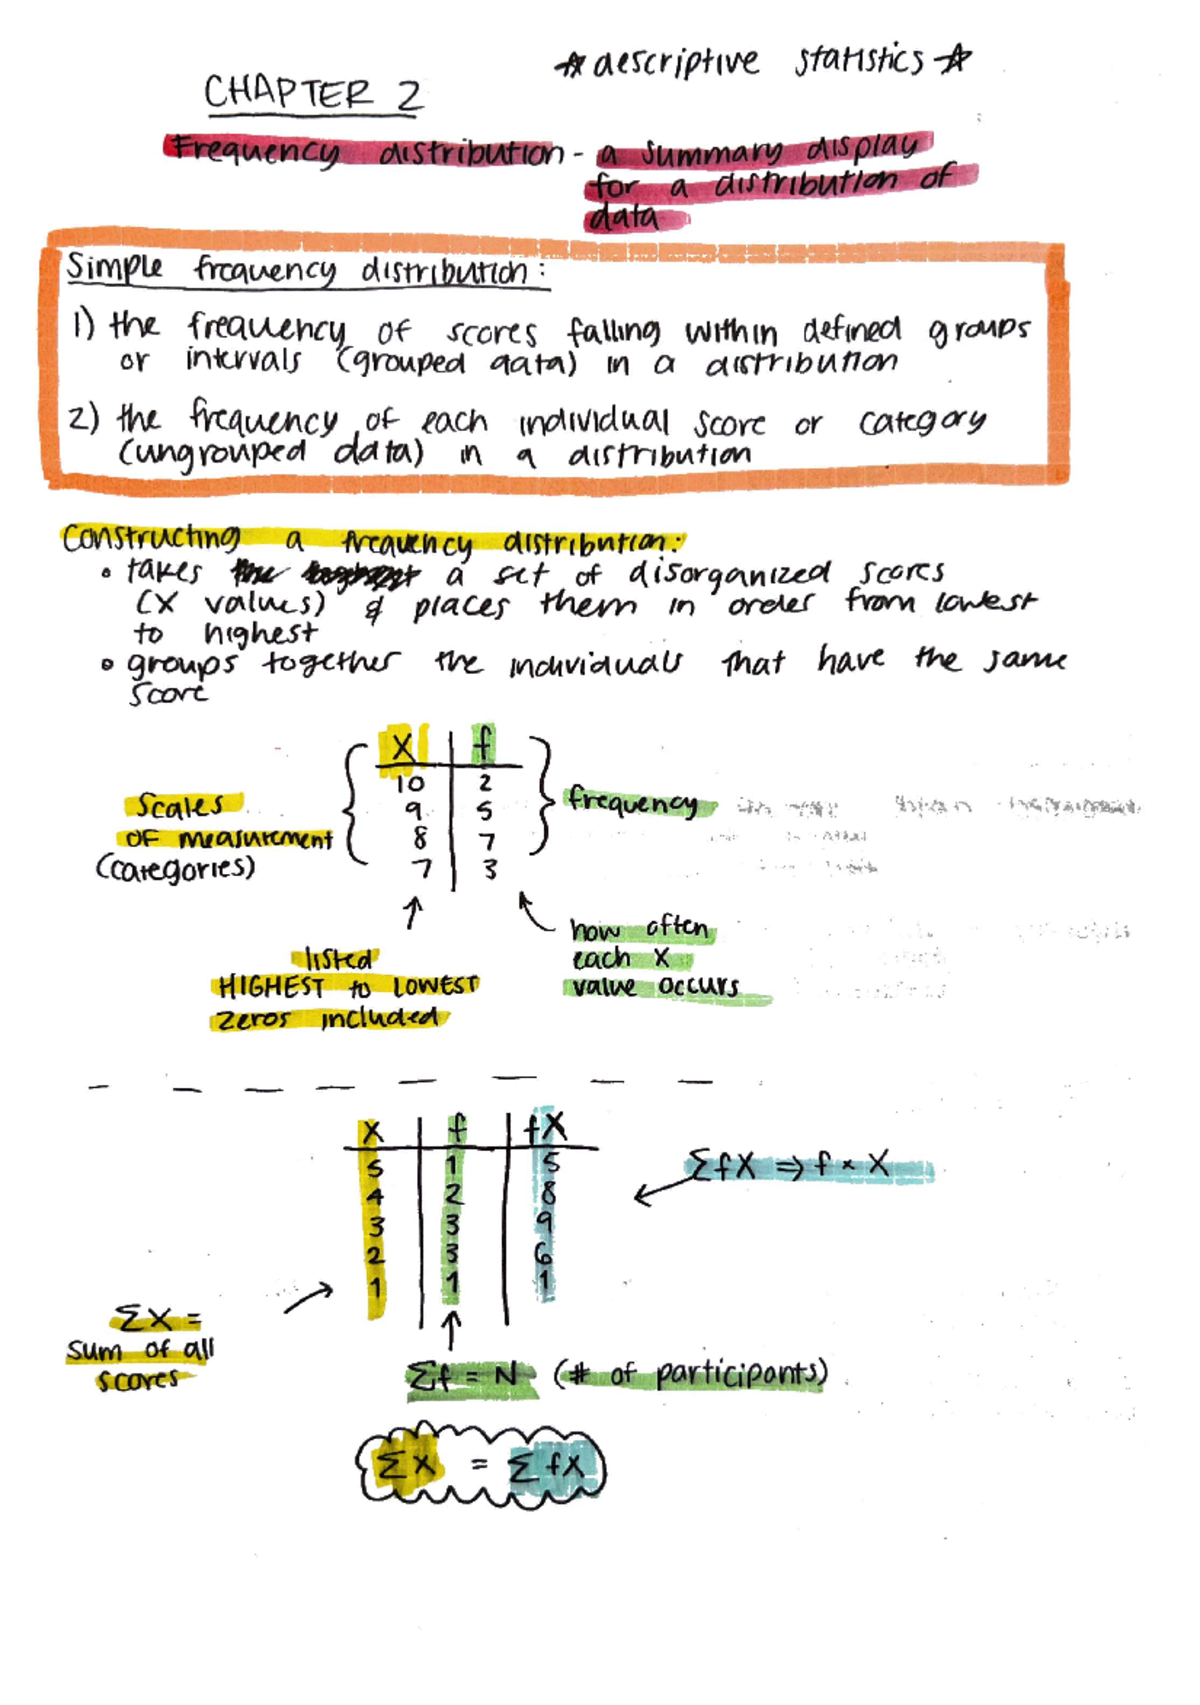 ☆ descriptive statistics ☆
CHAPTER 2
Frequency distribution - a summary display
for a distribution of
data
Simple frequency distribution:
1) the frequency of scores falling within defined groups
or intervals (grouped data) in a distribution
2) the frequency of each individual score or category
(ungrouped data) in a distribution
Constructing a frequency distribution:
• takes a set of disorganized scores
(X values) & places them in order from lowest
to highest
• groups together the individuals that have the same
score
X f
10 2
9 5
8 7
7 3
scales
OF measurement
(categories)
frequency
how often
each X
value occurs
listed
HIGHEST to LOWEST
zeros included
X f fX
5 1 5
4 2 8
3 3 9
2 3 6
1 1 1
ΣfX ⇒ f × X
ΣX =
sum of all
scores
Σf = N (# of participants)
ΣX = ΣfX